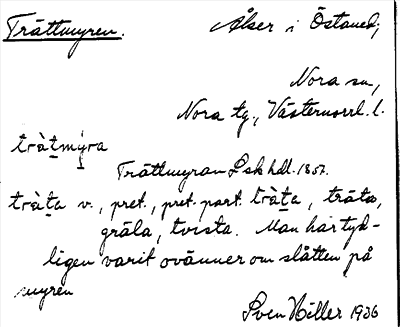 Trättmyren. Åker i Östaned,
Nora sn,
Nora tg., Västernorrl. l.
trạ̀tmy̆ra
Trättmyran Lsk hdl. 1857.
trạ̀ta v., pret., pret. part. trạ̀ta, träta,
gräla, tvista. Man har tyd-
ligen varit ovänner om slåtten på
myren
Sven Hiller 1936